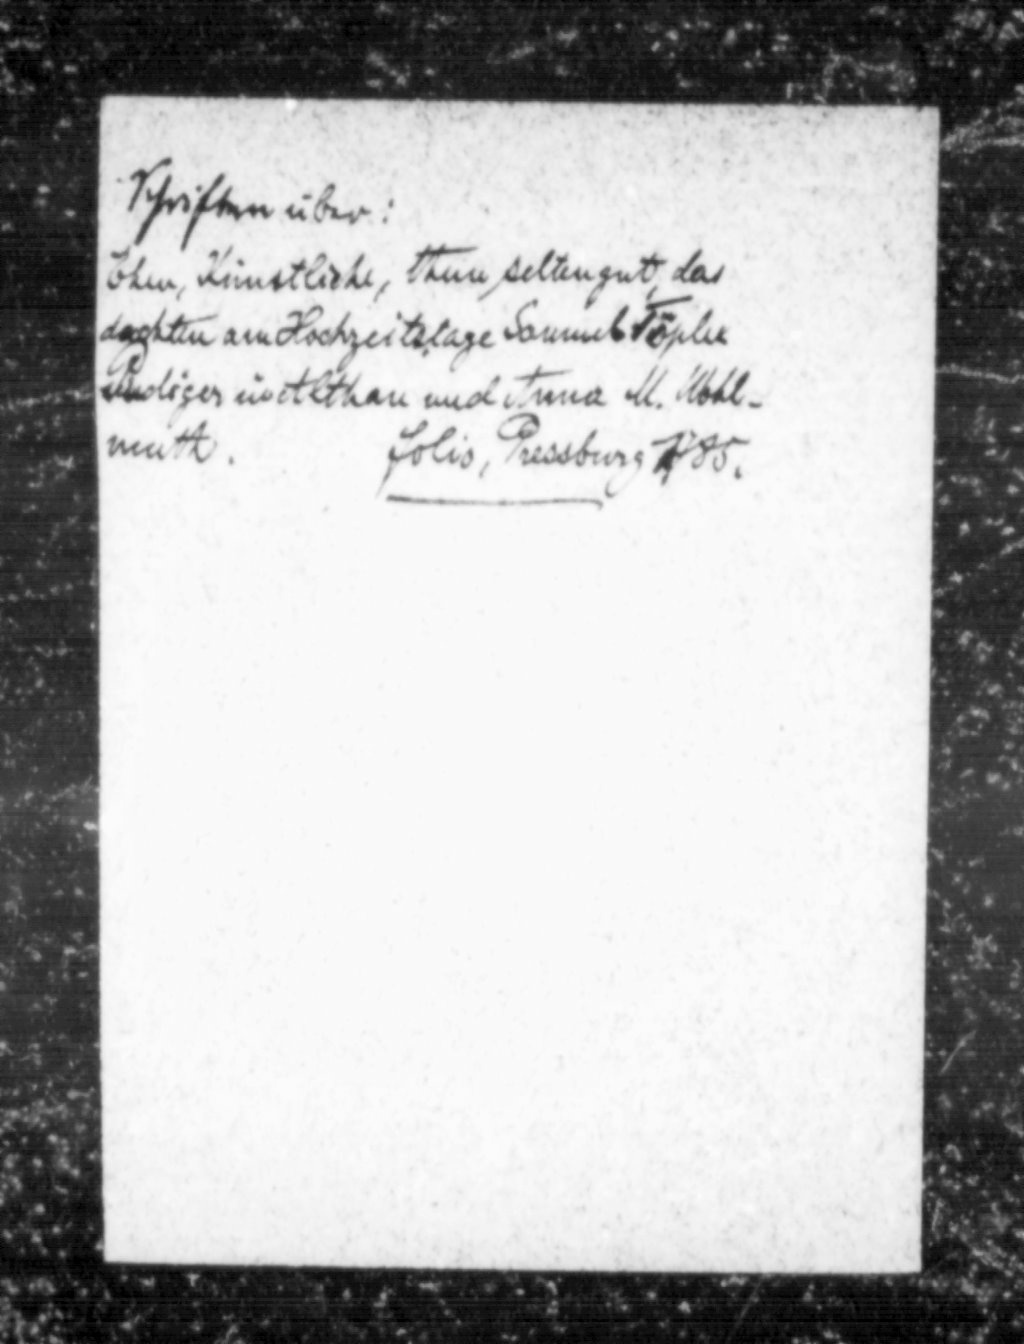 Schriften über:
Ehen, Künstliche, thun selten gut, das
dachten am Hochzeitstage Samuel Töpler
Prediger und Anna M. Wohl-
muth. folio, Pressburg 1785.